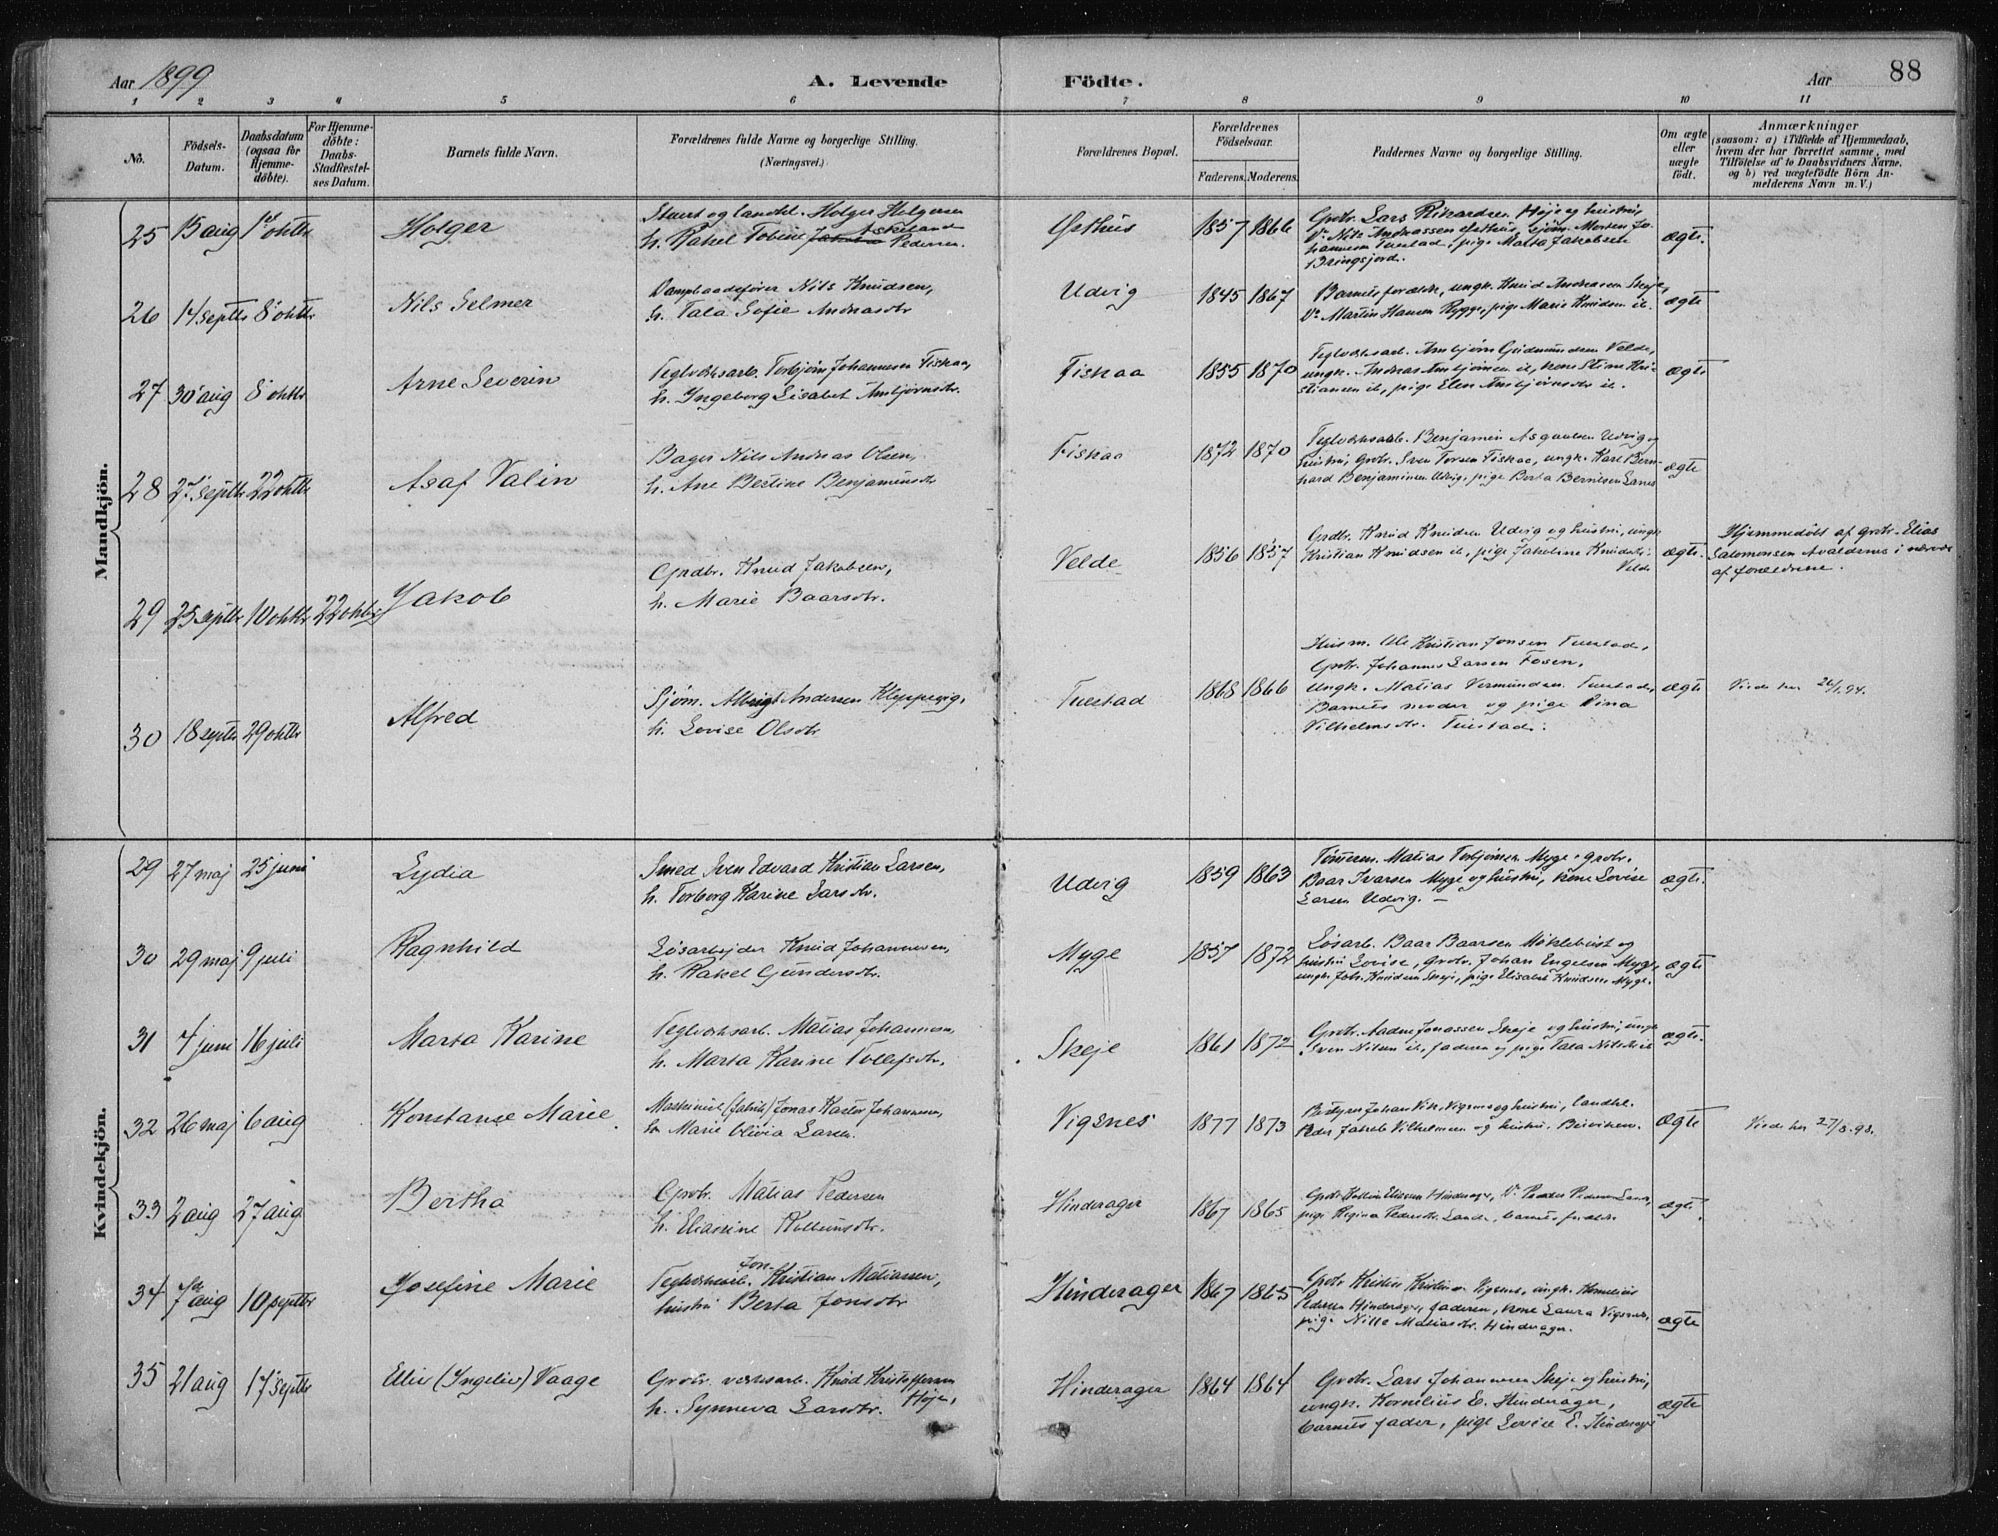 Aar 1899
A. Levende
Födte.
Aar
88
1 2 3 4 5 6 7 8 9 10 11
No.
Födsels-
Datum.
Daabsdatum
(ogsaa for
Hjemme-
döbte).
For Hjemme-
döbte:
Daabs-
Stadfæstel-
ses Datum.
Barnets fulde Navn.
Forældrenes fulde Navne og borgerlige Stilling.
(Næringsvei.)
Forældrenes Bopæl.
Forældrenes
Födselsaar.
Faderens. Moderens.
Faddernes Navne og borgerlige Stilling.
Om ægte
eller
uægte
födt.
Anmærkninger
(saasom: a) i Tilfælde af Hjemmedaab,
hvem der har forrettet samme, med
Tilföielse af to Daabsvidners Navne,
og b) ved uægtefödte Börn An-
melderens Navn m. V.)
Mandkjön.
25 15 aug 1st oktbr Holger
Stuert og landhl. Holger Holgersen
Askeland
h. Rakel Tobine Jakobsen Pedersen.
Østhus 1857 1866
Grdbr. Lars Rikardsen Høje og hustru,
Nils Andreassen Østhus, sjøm. Morten Jo-
hannesen Tuestad, pige Marta Jakobsen
Bringsjord.
ægte.
26 14 septbr 8 oktbr Nils Selmer
Dampbaadsfører Nils Knudsen,
h. Tala Sofie Andreasdtr
Udvig 1845 1867
Barnets forældre, ungk. Knud Andreasen Skeje,
Martin Hansen Rygge, pige Marie Knudsen ib.
ægte
27 30 aug 8 oktbr Arne Severin
Teglverksarb. Torbjørn Johannesen Fiskaa,
h. Ingeborg Lisabet Ambjørnsdtr.
Fiskaa 1855 1870
Teglverksarb. Ambjørn Gudmundsen Velde,
ungk. Andreas Ambjørnsen ib, kone Stine Kri-
stiansen ib, pige Elen Ambjørnsdtr ib.
ægte
28 27 septbr 22 oktbr Asaf Valin
Bager Nils Andreas Olsen,
h. Ane Bertine Benjaminsdtr
Fiskaa 1872 1870
Teglverksarb. Benjamin Asgautsen Udvig og
hustru, Grdbr. Sven Torsen Fiskaa, ungk. Karl Bern-
hard Benjaminsen Udvig, pige Berta Berntsen Sanes
ægte
29 25 septbr 10 oktbr 22 oktbr Jakob
Grdbr. Knud Jakobsen,
h. Marie Baarsdtr.
Velde 1856 1857
Grdbr. Knud Knudsen Udvig og hustru, ungk.
Kristian Knudsen ib, pige Jakobine Knudsdtr
Velde
ægte.
Hjemmedøbt af grdbr. Elias
Salomonsen Avaldsnes i nærvær
af forældrene.
30 18 septbr 29 oktbr Alfred
Sjøm. Albrigt Andersen Kleppevig,
h. Lovise Olsdtr
Tuestad 1868 1866
Husm. Ole Kristian Jonsen Tuestad,
Grdbr. Johannes Larsen Fosen,
ungk. Matias Vermundsen Tuestad,
Barnets moder og pige Vina
Vilhelmsdtr. Tuestad.
ægte
Viede her 26/1.94.
Kvindekjön.
29 27 maj 25 juni Lydia
Smed Sven Edvard Kristian Larsen,
h. Torborg Karine Larsdtr.
Udvig 1859 1863
Tømrem. Matias Torbjørnsen Myge, grdbr.
Baar Ivarsen Myge og hustru, kone Lovise
Larsen Udvig. —
ægte.
30 29 maj 9 juli Ragnhild
Løsarbejder Knud Johannesen,
h. Rakel Gundersdtr.
Myge 1857 1872
Løsarb. Baar Baarsen Møklebust og
hustru Lovise, Grdbr. Johan Engelsen Myge,
ungk. Joh. Knudsen Skeje, pige Elisabet Knudsen Myge.
ægte
31 4 juni 16 juli Marta Karine
Teglverksarb. Matias Johannesen,
h. Marta Karine Tollefsdtr.
Skeje 1861 1872
Grdbr. Aadne Jonassen Skeje og hustru, ungk
Sven Nilsen ib, faderen og pige Tala Nilsdtr ib
ægte.
32 26 maj 6 aug Konstanse Marie
Maskinist (fabrik) Jonas Kastor Johannesen,
h. Marie Olivia Larsen.
Vigsnes 1877 1873
Bestyrer Johan Vik, Vigsnes og hustru, landhl.
Peder Jakob Vilhelmsen og hustru.
ægte
Viede her 27/8.98.
33 2 aug 27 aug Bertha
Grdbr. Matias Pedersen
h. Eliassine Kolbensdtr.
Hinderager 1867 1865
Grdbr Kolben Eliassen Hinderager, Peder Pedersen Sande,
pige Regina Pedersdtr. Sande, barnets forældre
ægte.
34 7de aug 10 septbr Josefine Marie
Teglverksarb. Jon Kristian Matiassen,
hustru Berta Jonsdtr
Hinderager 1867 1865
Grdbr Kristen Kristensen Vigsnes, ungk. Kornelius
Pedersen Hinderager, faderen, kone Laura Vigsnes,
pige Nille Matiasdtr. Hinderager.
ægte
35 21 aug 17 septbr Eliv (Ingeliv) Vaage
Grdbr. verksarb. Knud Kristoffersen
Høje,
h. Synneva Larsdtr.
Hinderager 1864 1864
Grdbr. Lars Johannesen Skeje og hustru,
ungk. Kornelius E. Hinderager,
barnets fader, pige Lovise E. Hinderager
ægte